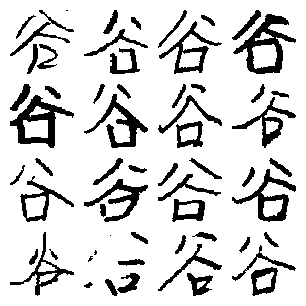 谷谷谷谷
谷谷谷谷
谷谷谷谷
谷谷谷谷